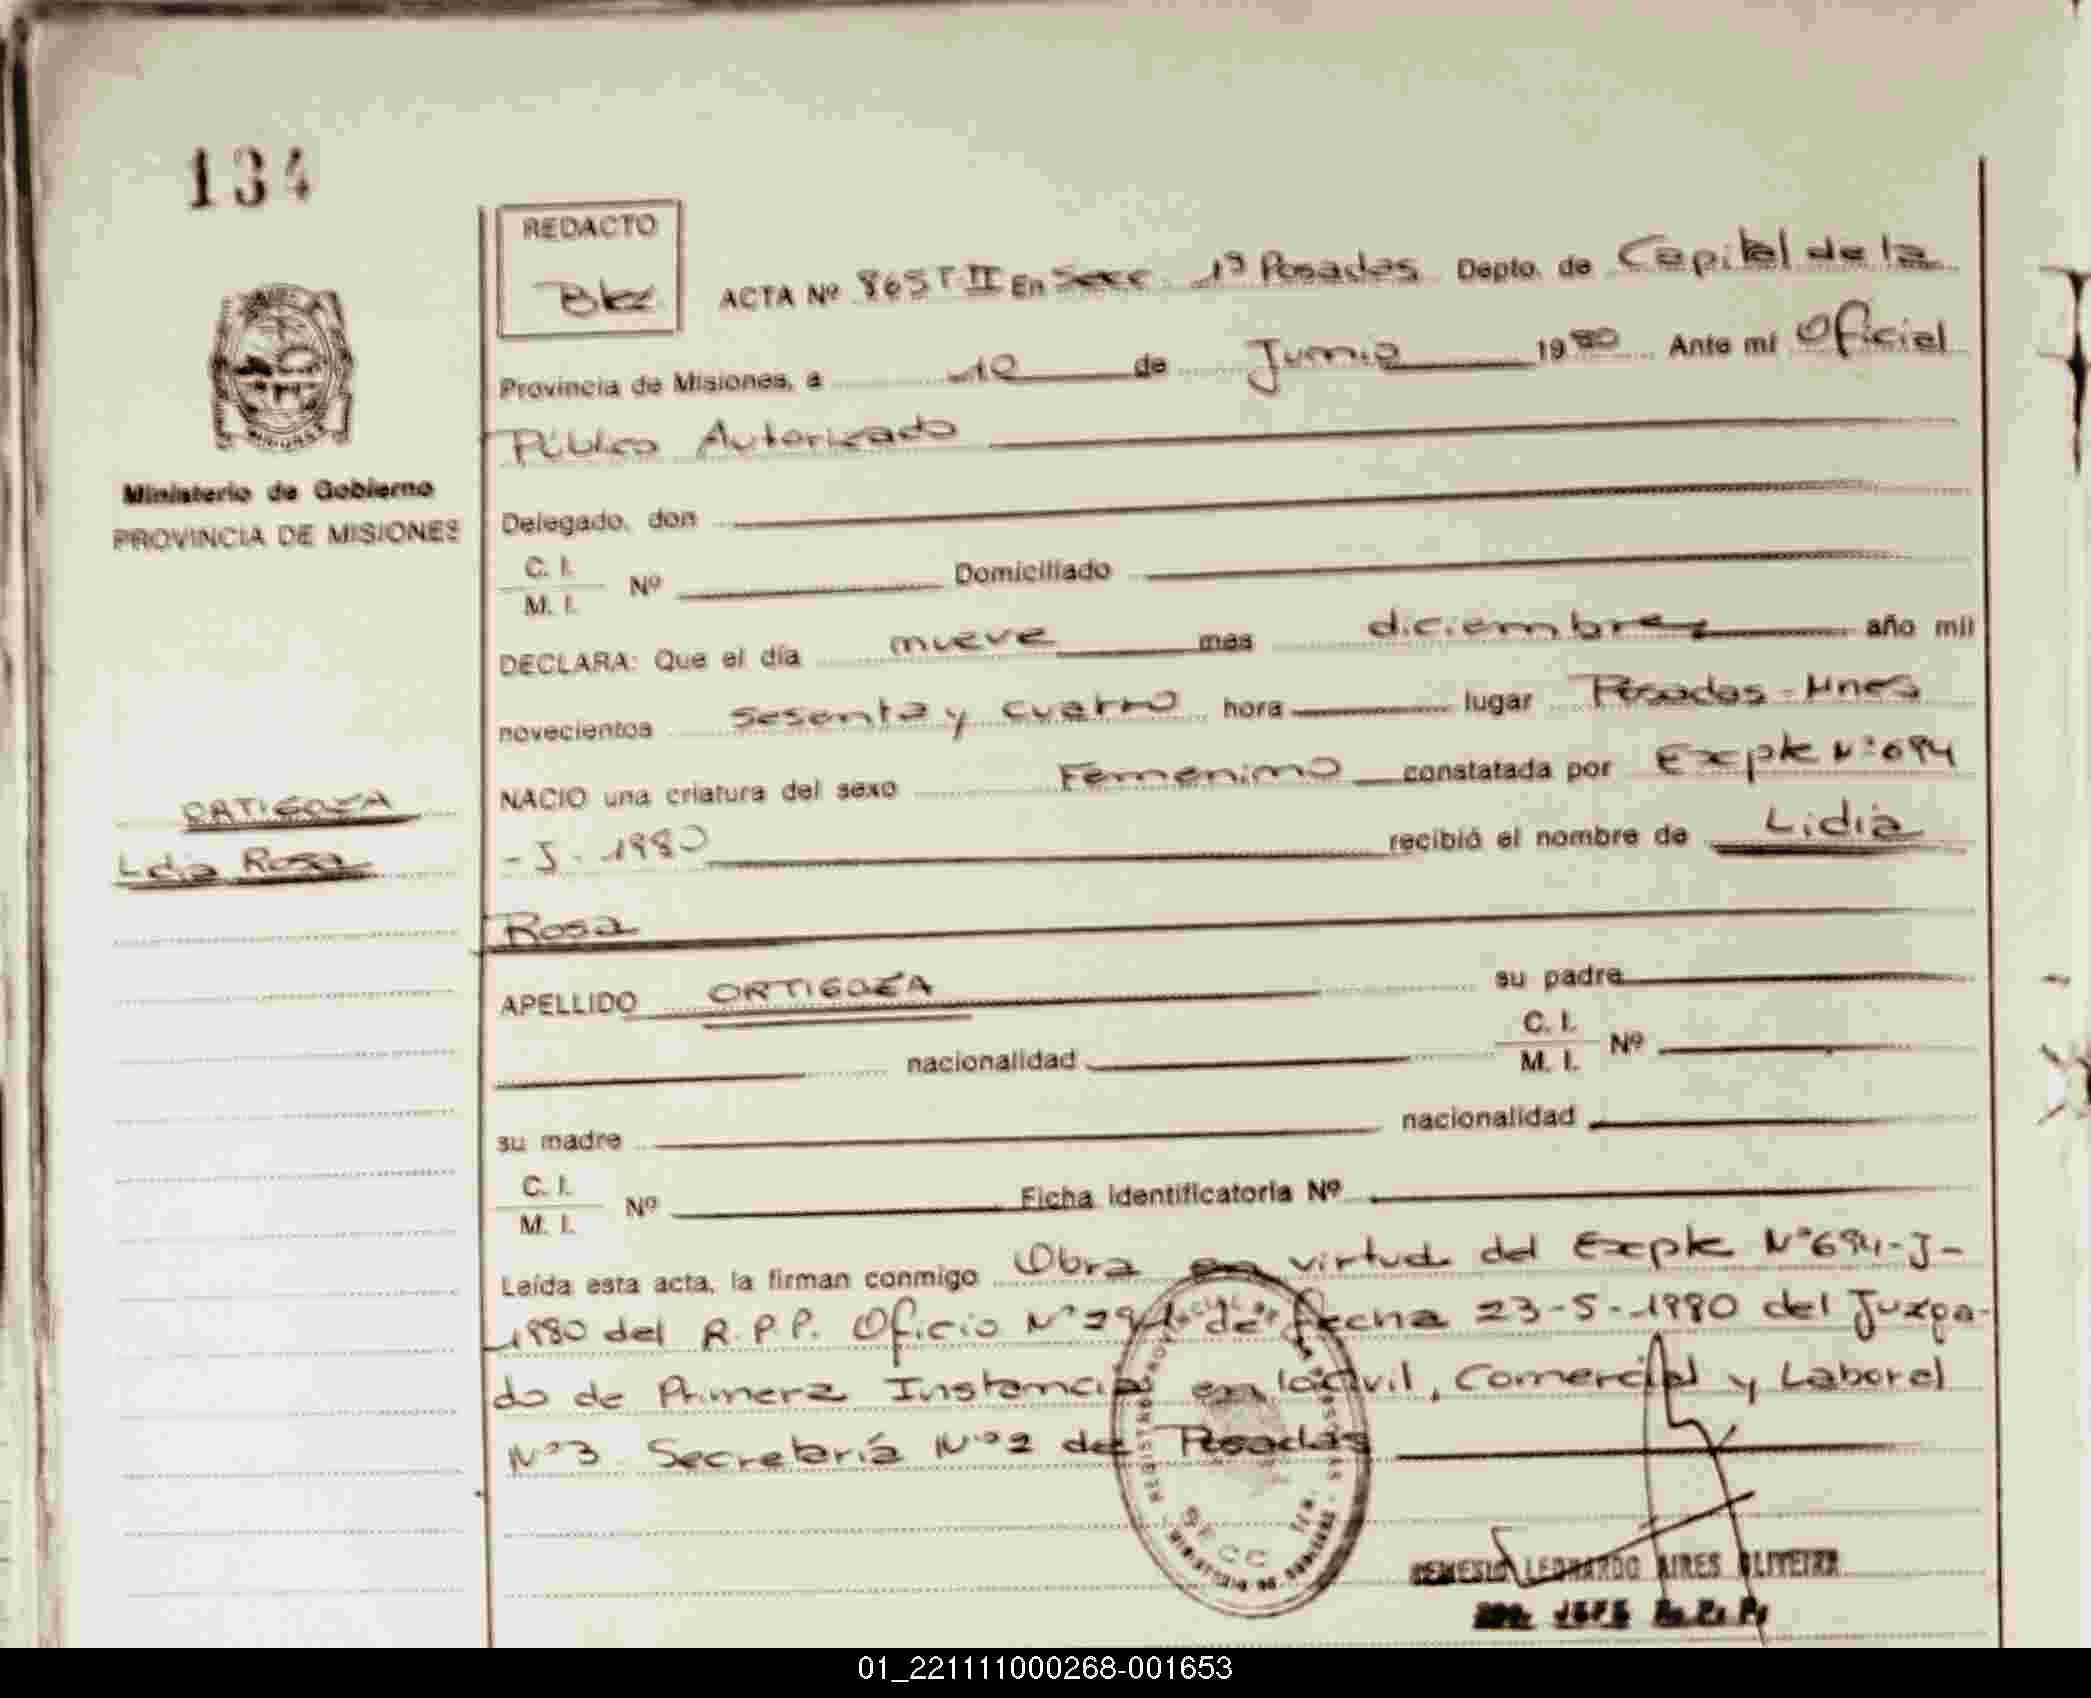 134
REDACTO
ACTA Nº 865 T-II En Secc. 1ª Posadas Depto. de Capital de la
Provincia de Misiones, a 10 de Junio 1980 Ante mí Oficial
Público Autorizado
Ministerio de Gobierno
PROVINCIA DE MISIONES
Delegado, don
C. I.
M. I. Nº Domiciliado
DECLARA: Que el día nueve mes diciembre año mil
novecientos sesenta y cuatro hora lugar Posadas - Mnes
NACIO una criatura del sexo Femenino constatada por Expte Nº 694
- J - 1980 recibió el nombre de Lidia
Rosa
ORTIGOZA
Lidia Rosa
APELLIDO ORTIGOZA su padre
nacionalidad C. I.
M. I. Nº
su madre nacionalidad
C. I.
M. I. Nº Ficha identificatoria Nº
Leída esta acta, la firman conmigo Obra en virtud del Expte Nº 694-J-
1980 del R.P.P. Oficio Nº de fecha 23-5-1980 del Juzga-
do de Primera Instancia en lo Civil, Comercial y Laboral
Nº 3 Secretaría Nº 2 de Posadas
LEONARDO AIRES OLIVEIRA
01_221111000268-001653